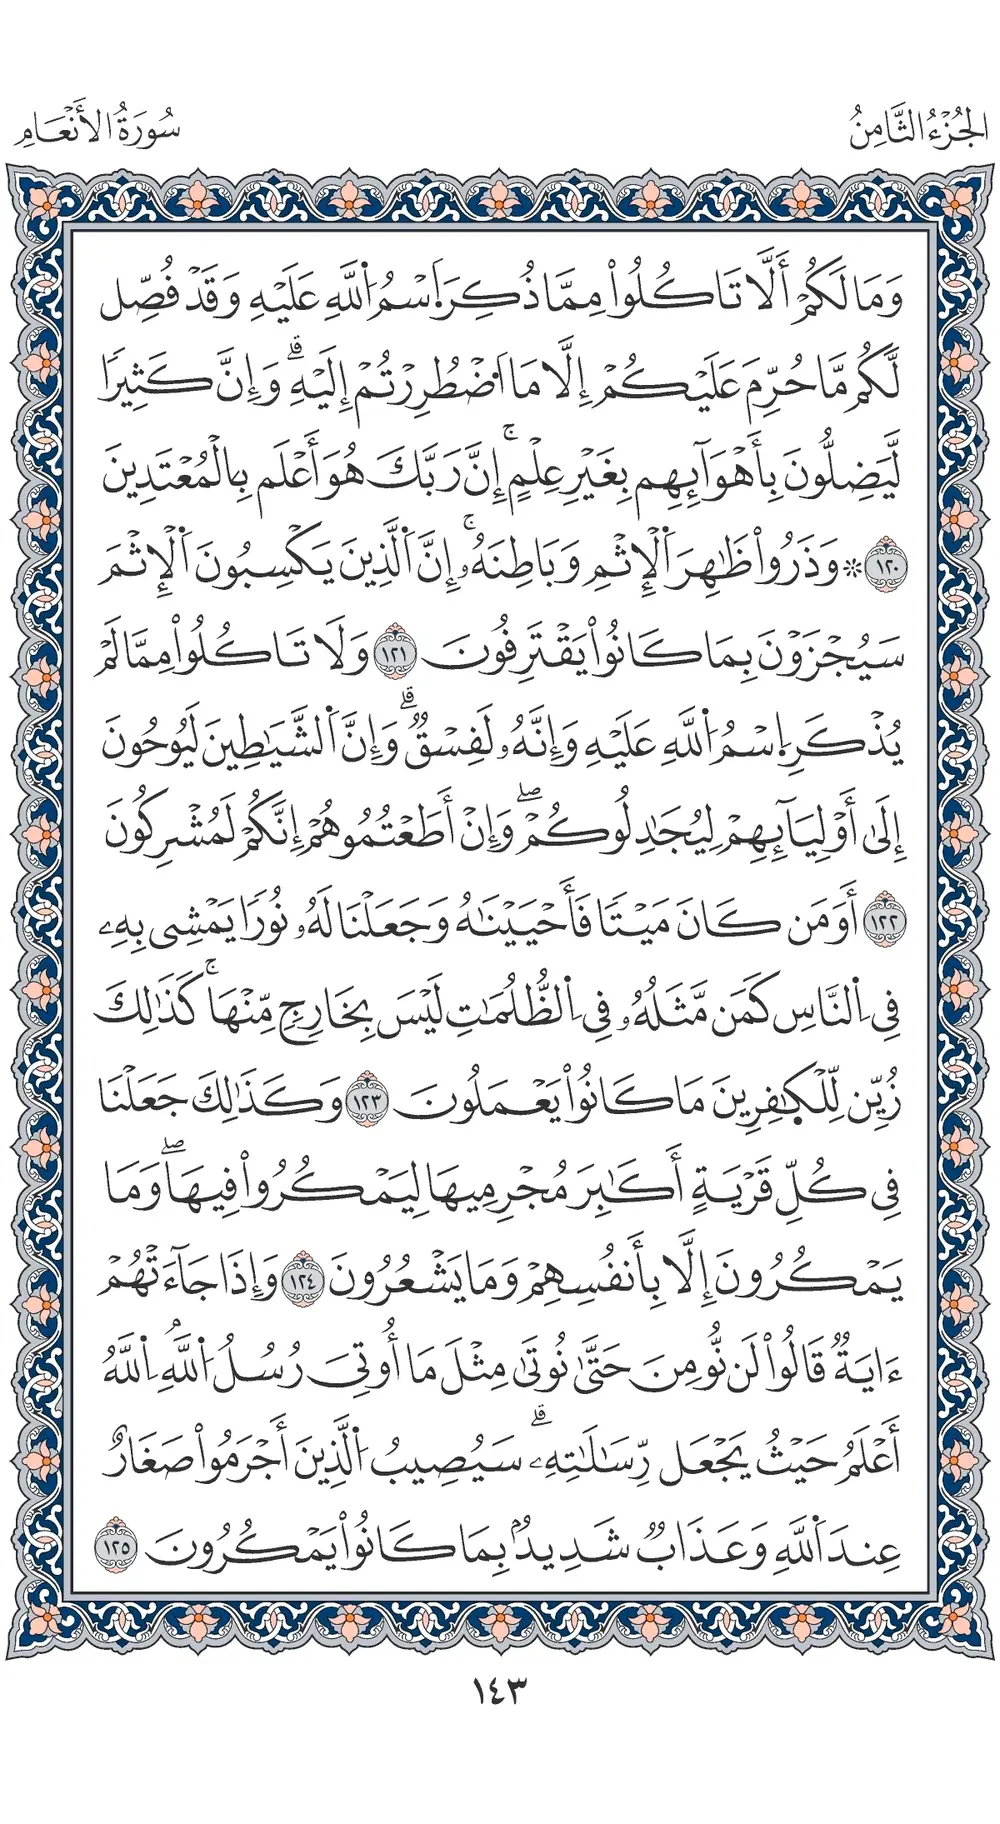 الجُزْءُ الثَّامِنُ
سُورَةُ الأَنْعَامِ
وَمَا لَكُمْ أَلَّا تَاكُلُوا۟ مِمَّا ذُكِرَ اَ۪سْمُ اُ۬للَّهِ عَلَيْهِ وَقَدْ فُصِّل
لَّكُم مَّا حُرِّمَ عَلَيْكُمْ إِلَّا مَا اَ۟ضْطُرِرْتُمْ إِلَيْهِۗ وَإِنَّ كَثِيرٗا
لَّيَضِلُّونَ بِأَهْوَآئِهِم بِغَيْرِ عِلْمٍۚ إِنَّ رَبَّكَ هُوَ أَعْلَم بِالْمُعْتَدِينَ
١٢٠ ۞ وَذَرُوا۟ ظَٰهِرَ اَ۬لْإِثْمِ وَبَاطِنَهُۥۚ إِنَّ اَ۬لَّذِينَ يَكْسِبُونَ اَ۬لْإِثْمَ
سَيُجْزَوْنَ بِمَا كَانُوا۟ يَقْتَرِفُونَ ١٢١ وَلَا تَاكُلُوا۟ مِمَّا لَمْ
يُذْكَرِ اِ۪سْمُ اُ۬للَّهِ عَلَيْهِ وَإِنَّهُۥ لَفِسْقٞۗ وَإِنَّ اَ۬لشَّيَٰطِينَ لَيُوحُونَ
إِلَىٰ أَوْلِيَآئِهِمْ لِيُجَٰدِلُوكُمْۖ وَإِنْ أَطَعْتُمُوهُمْ إِنَّكُمْ لَمُشْرِكُونَ
١٢٢ أَوَمَن كَانَ مَيْتٗا فَأَحْيَيْنَٰهُ وَجَعَلْنَا لَهُۥ نُورٗا يَمْشِى بِهِۦ
فِى اِ۬لنَّاسِ كَمَن مَّثَلُهُۥ فِى اِ۬لظُّلُمَٰتِ لَيْسَ بِخَارِجٖ مِّنْهَاۚ كَذَٰلِكَ
زُيِّن لِّلْكٰ۪فِرِينَ مَا كَانُوا۟ يَعْمَلُونَ ١٢٣ وَكَذَٰلِكَ جَعَلْنَا
فِى كُلِّ قَرْيَةٍ أَكَٰبِرَ مُجْرِمِيهَا لِيَمْكُرُوا۟ فِيهَاۖ وَمَا
يَمْكُرُونَ إِلَّا بِأَنفُسِهِمْ وَمَا يَشْعُرُونَ ١٢٤ وَإِذَا جَآءَتْهُمْ
ءَايَةٞ قَالُوا۟ لَن نُّومِنَ حَتَّىٰ نُوتَىٰ مِثْلَ مَا أُوتِىَ رُسُلُ اُ۬للَّهِۘ اِ۬للَّهُ
أَعْلَمُ حَيْثُ يَجْعَل رِّسَٰلَٰتِهِۦۗ سَيُصِيبُ اُ۬لَّذِينَ أَجْرَمُوا۟ صَغَارٌ
عِندَ اَ۬للَّهِ وَعَذَابٞ شَدِيدُۢ بِمَا كَانُوا۟ يَمْكُرُونَ ١٢٥
١٤٣